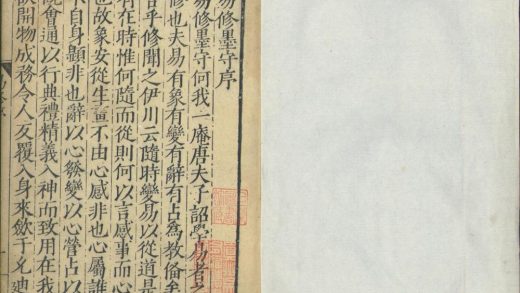 易修墨守序
易修墨守何我一庵唐夫子詔學易者之
修也夫易有象有變有辭有占為教備矣
吾乎修聞之伊川云隨時變易以從道是
有在時惟何隨而從則何以言感事而心
也故象安從生畫不由心感非也心屬誰
自身顯非也辭以心發變以心營占以
既會通以行典禮精義入神而致用在我
開物成務令人反覆入身來歛于允迪